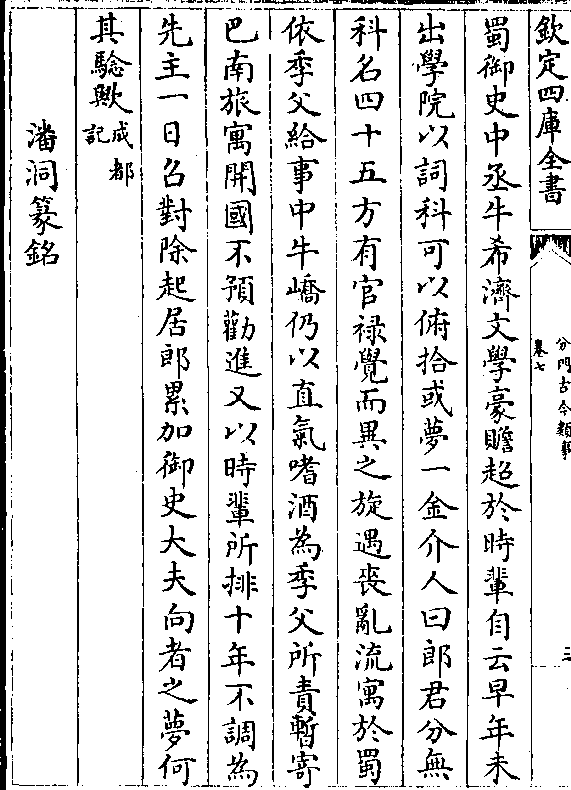 欽定四庫全書
分門古今類事
卷七
三
蜀御史中丞牛希濟文學豪贍超於時軰自云早年未
出學院以詞科可以俯拾或夢一金介人曰郎君分無
科名四十五方有官禄覺而異之旋遇喪亂流寓於蜀
依季父給事中牛嶠仍以直氣嗜酒為季父所責暫寄
巴南旅寓開國不預勸進又以時輩所排十年不調為
先主一日召對除起居郎累加御史大夫向者之夢何
其驗歟成都
記
潘洞篆銘